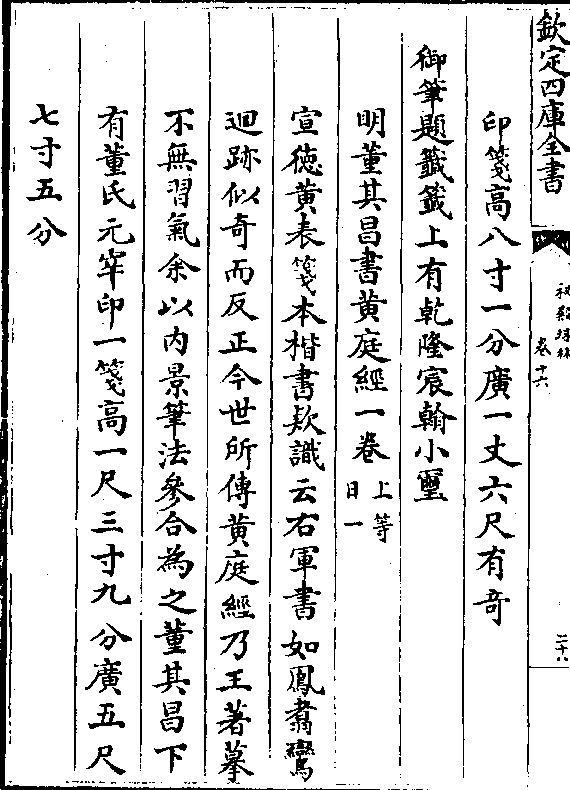 欽定四庫全書
秘殿珠林
卷十六
二十六
印箋高八寸一分廣一丈六尺有奇
御筆題籤籤上有乾隆宸翰小璽
明董其昌書黄庭經一卷上等日一
宣徳黄表箋本楷書欵識云右軍書如鳳翥鸞
迴跡似奇而反正今世所傳黄庭經乃王著摹
不無習氣余以内景筆法參合為之董其昌下
有董氏元宰印一箋高一尺三寸九分廣五尺
七寸五分